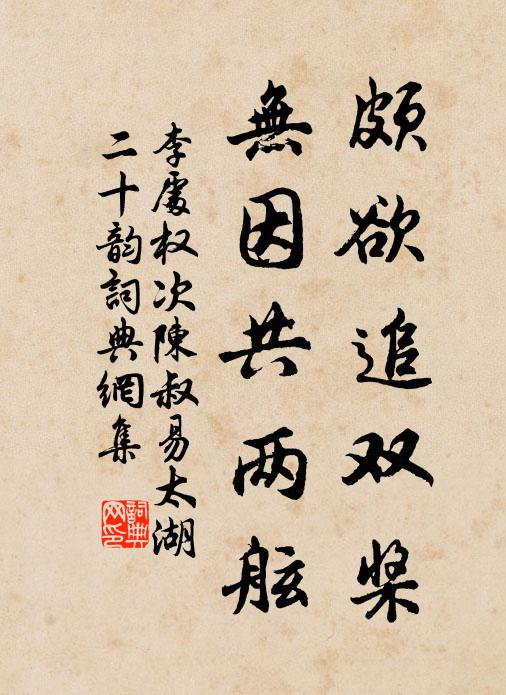 頗欲追双桨
無因共两舷
李處权次陳叔易太湖
二十韵詞典網集
詞典
网印